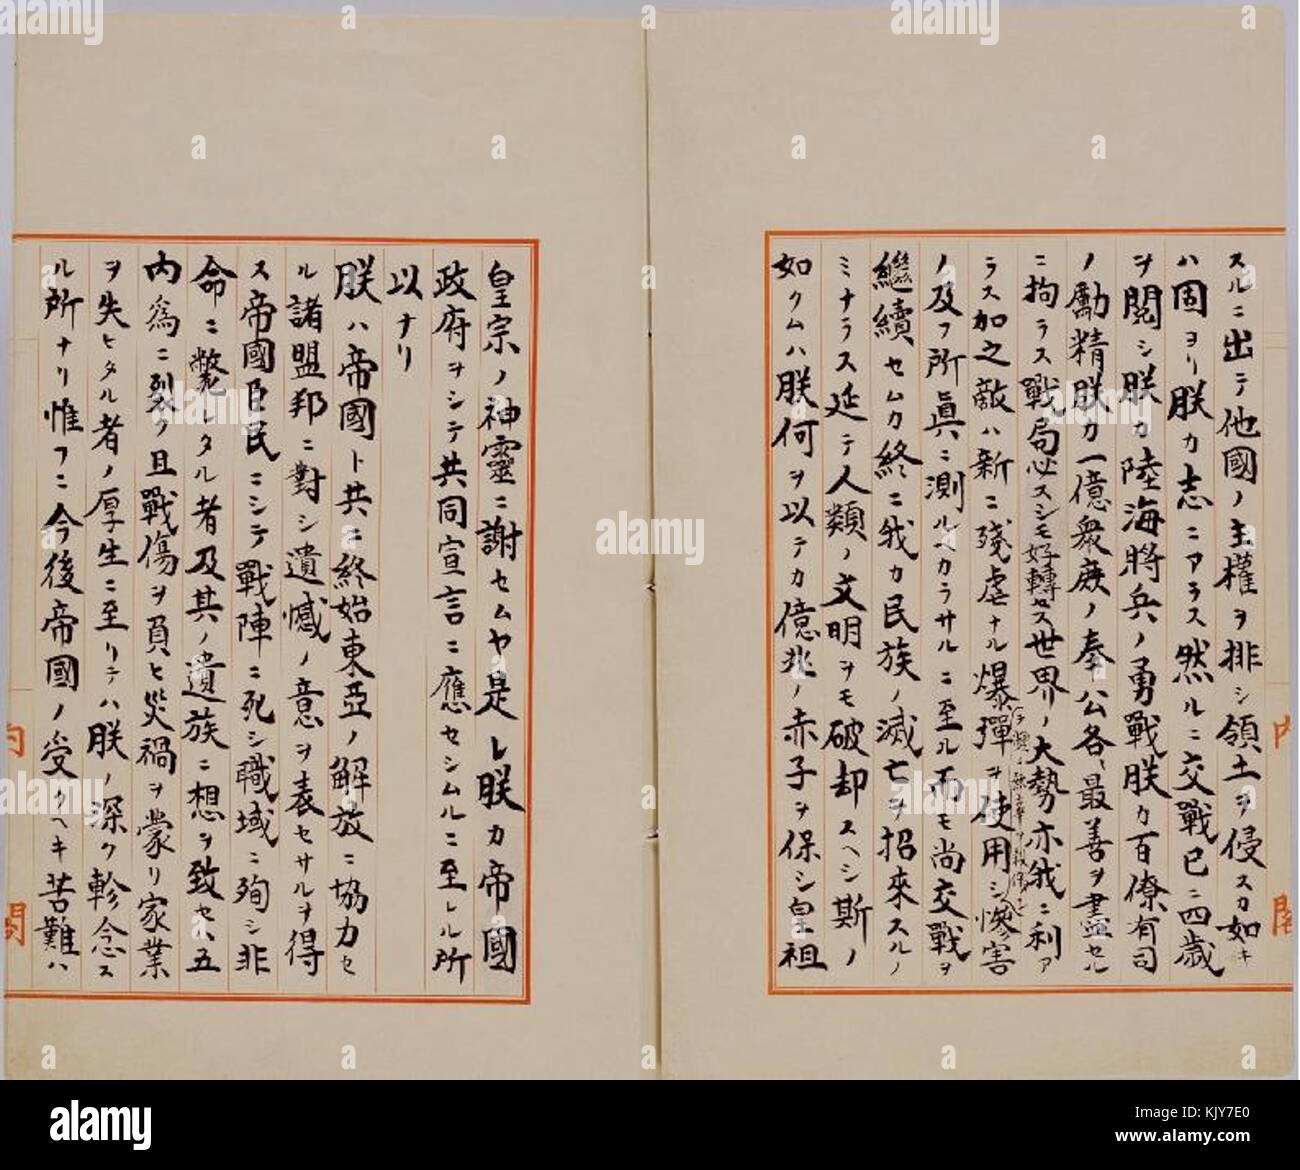 スルニ出テ他國ノ主權ヲ排シ領土ヲ侵スカ如キ
ハ固ヨリ朕カ志ニアラス然ルニ交戰已ニ四歳
ヲ閲シ朕カ陸海將兵ノ勇戰朕カ百僚有司
ノ勵精朕カ一億衆庶ノ奉公各〻最善ヲ盡セル
ニ拘ラス戰局必スシモ好轉セス世界ノ大勢亦我ニ利ア
ラス加之敵ハ新ニ殘虐ナル爆彈ヲ使用シ惨害
頻ニ無辜ヲ殺傷シ
ノ及フ所眞ニ測ルヘカラサルニ至ル而モ尚交戰ヲ
繼續セムカ終ニ我カ民族ノ滅亡ヲ招來スルノ
ミナラス延テ人類ノ文明ヲモ破却スヘシ斯ノ
如クムハ朕何ヲ以テカ億兆ノ赤子ヲ保シ皇祖
皇宗ノ神靈ニ謝セムヤ是レ朕カ帝國
政府ヲシテ共同宣言ニ應セシムルニ至レル所
以ナリ
朕ハ帝國ト共ニ終始東亞ノ解放ニ協力セ
ル諸盟邦ニ對シ遺憾ノ意ヲ表セサルヲ得
ス帝國臣民ニシテ戰陣ニ死シ職域ニ殉シ非
命ニ斃レタル者及其ノ遺族ニ想ヲ致セハ五
内爲ニ裂ク且戰傷ヲ負ヒ災禍ヲ蒙リ家業
ヲ失ヒタル者ノ厚生ニ至リテハ朕ノ深ク軫念ス
ル所ナリ惟フニ今後帝國ノ受クヘキ苦難ハ
内閣
内閣
alamy
Image ID: KJY7E0
www.alamy.com